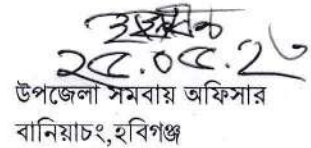 ২৫.০৫.২৩
উপজেলা সমবায় অফিসার
বানিয়াচং,হবিগঞ্জ